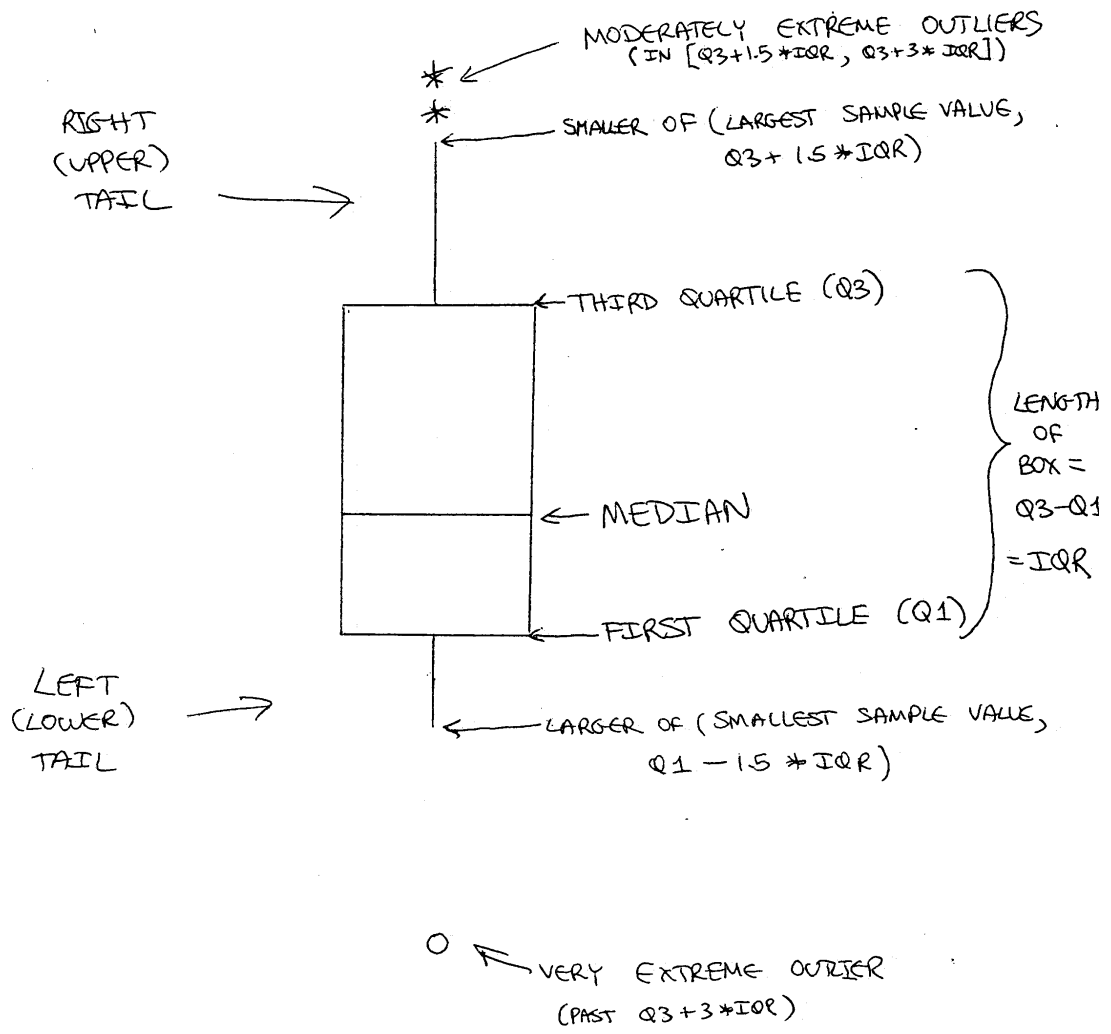 MODERATELY EXTREME OUTLIERS
(IN [Q3+1.5*IQR, Q3+3*IQR])
RIGHT
(UPPER)
TAIL
SMALLER OF (LARGEST SAMPLE VALUE,
Q3+1.5*IQR)
THIRD QUARTILE (Q3)
LENGTH
OF
BOX =
Q3-Q1
= IQR
MEDIAN
FIRST QUARTILE (Q1)
LEFT
(LOWER)
TAIL
LARGER OF (SMALLEST SAMPLE VALUE,
Q1 - 1.5 * IQR)
VERY EXTREME OUTLIER
(PAST Q3+3*IQR)